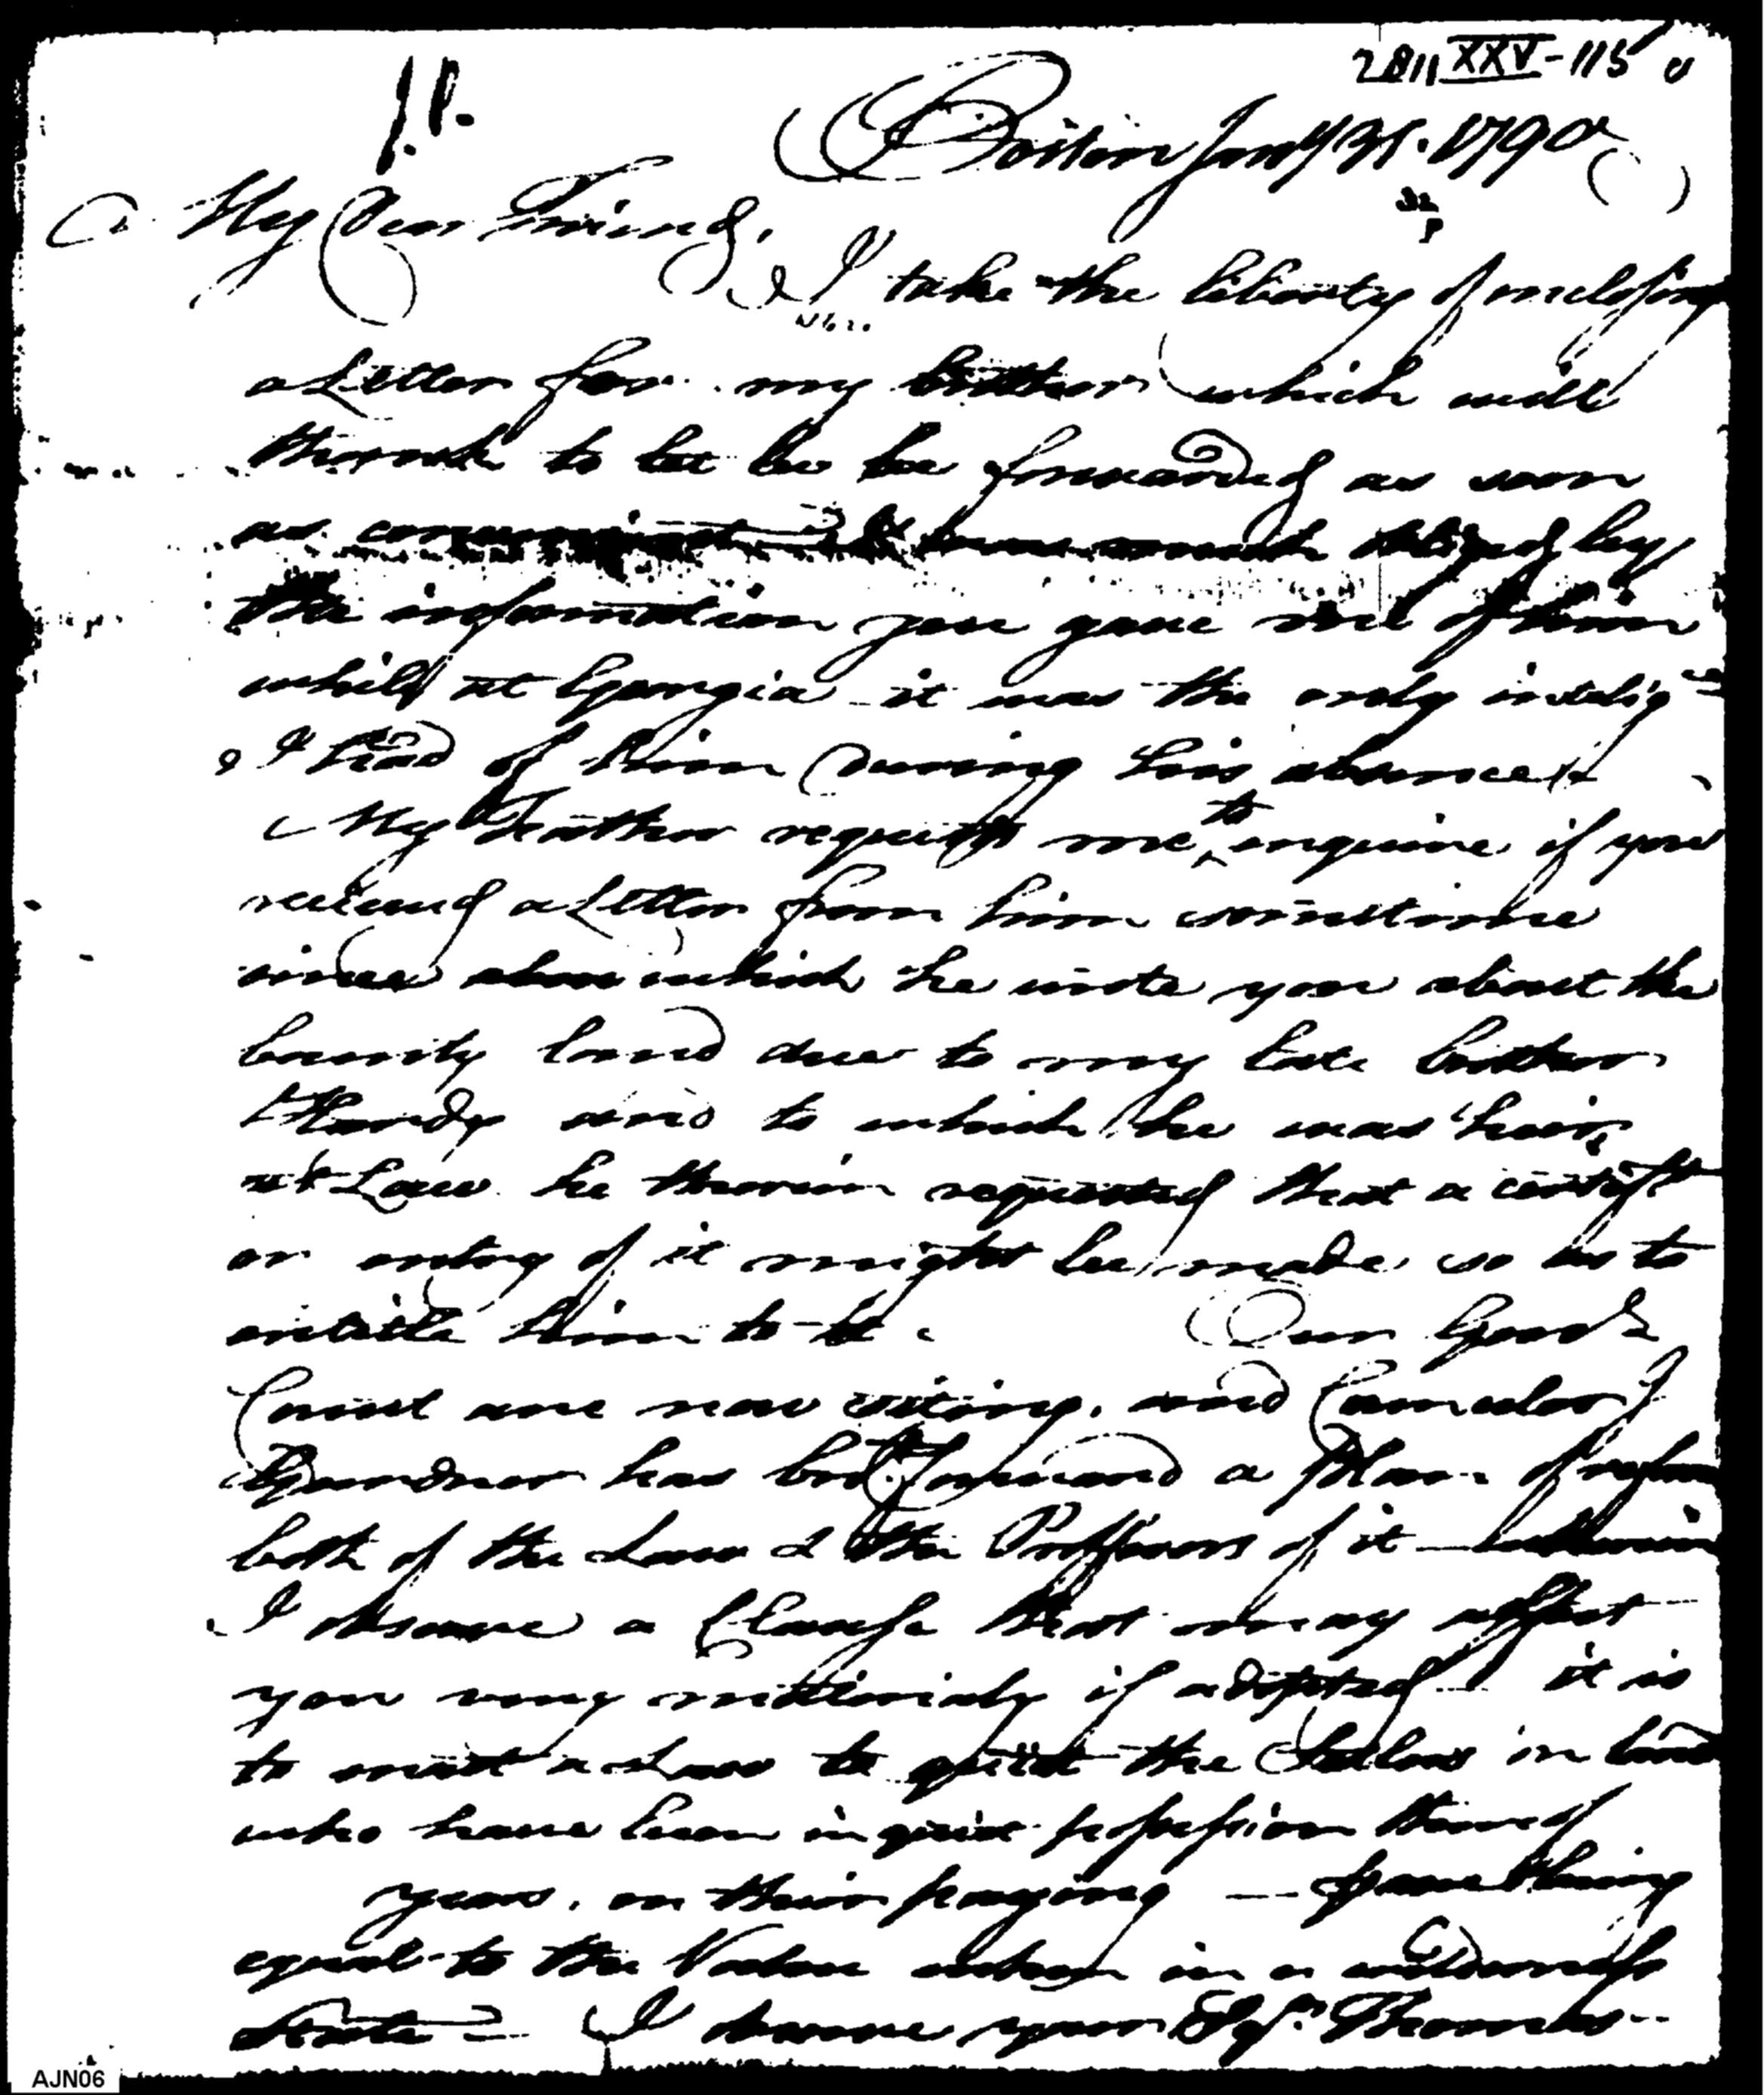 2811 XXV-115
J.P.
Boston Jany 31. 1790
My Dear Friend,
I take the liberty of inclosing
a Letter for my brother which will
thank to let be forwarded as soon
as convenient much obliged by
the information you gave me of him
whilst at Georgia it was the only intelige
I had of him During his absence
My Father requests me to enquire if you
received a Letter from him sometime
since which he wrote you about the
bounty land due to my late brother
Hardy and to which he was heir
at Law he therein requested that a certift
or entry of it might be made so as to
entitle him to it. Our Genl
Court are now siting, and Counselor
Gardner has brot forward a Plan of reform
both of the Law & the Professors of it
I observe a Clause that may affect
you very materialy if adopted it is
to enact a Law to quiet the Setlers on land
who have been in quiet possession thereof
years, on their paying — something
equal to the Value when in a wilderness
State — I your Thomas
AJN06